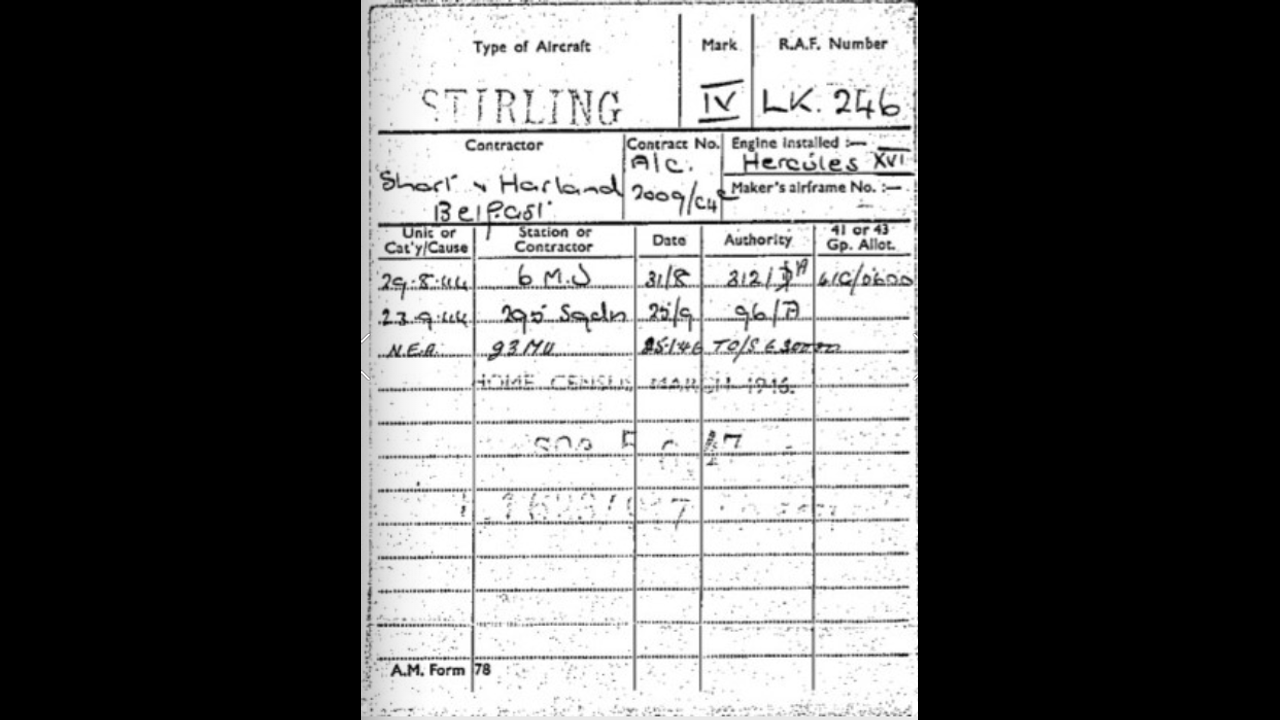 Type of Aircraft Mark R.A.F. Number
STIRLING IV LK. 246
Contractor Contract No. Engine installed :—
A/C. Hercules XVI
Short & Harland 2009/C4 Maker's airframe No. :—
Belfast
Unit or Cat'y/Cause Station or Contractor Date Authority 41 or 43 Gp. Allot.
29.8.44 6 M.U 31/8 41G/0600
23.9.44 295 Sqdn 25/9 96/A
N.E.A. 93 MU
HOME CENSUS MARCH 1946.
A.M. Form 78